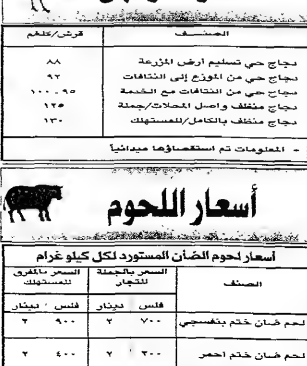 الصنــف قرش/كلغم
دجاج حي تسليم أرض المزرعة ٨٨
دجاج حي من الموزع إلى النتافات ٩٢
دجاج حي من النتافات مع الخدمة ٩٥ - ١٠٠
دجاج منظف واصل المحلات/جملة ١٢٥
دجاج منظف بالكامل/للمستهلك ١٣٠
- المعلومات تم استقصاؤها ميدانياً
أسعار اللحوم
أسعار لحوم الضأن المستورد لكل كيلو غرام
الصنف السعر بالجملة للتجار السعر بالمفرق للمستهلك
فلس دينار فلس دينار
لحم ضان ختم بنفسجي ٧٠٠ ٢ ٩٠٠ ٢
لحم ضان ختم احمر ٢٠٠ ٢ ٤٠٠ ٢